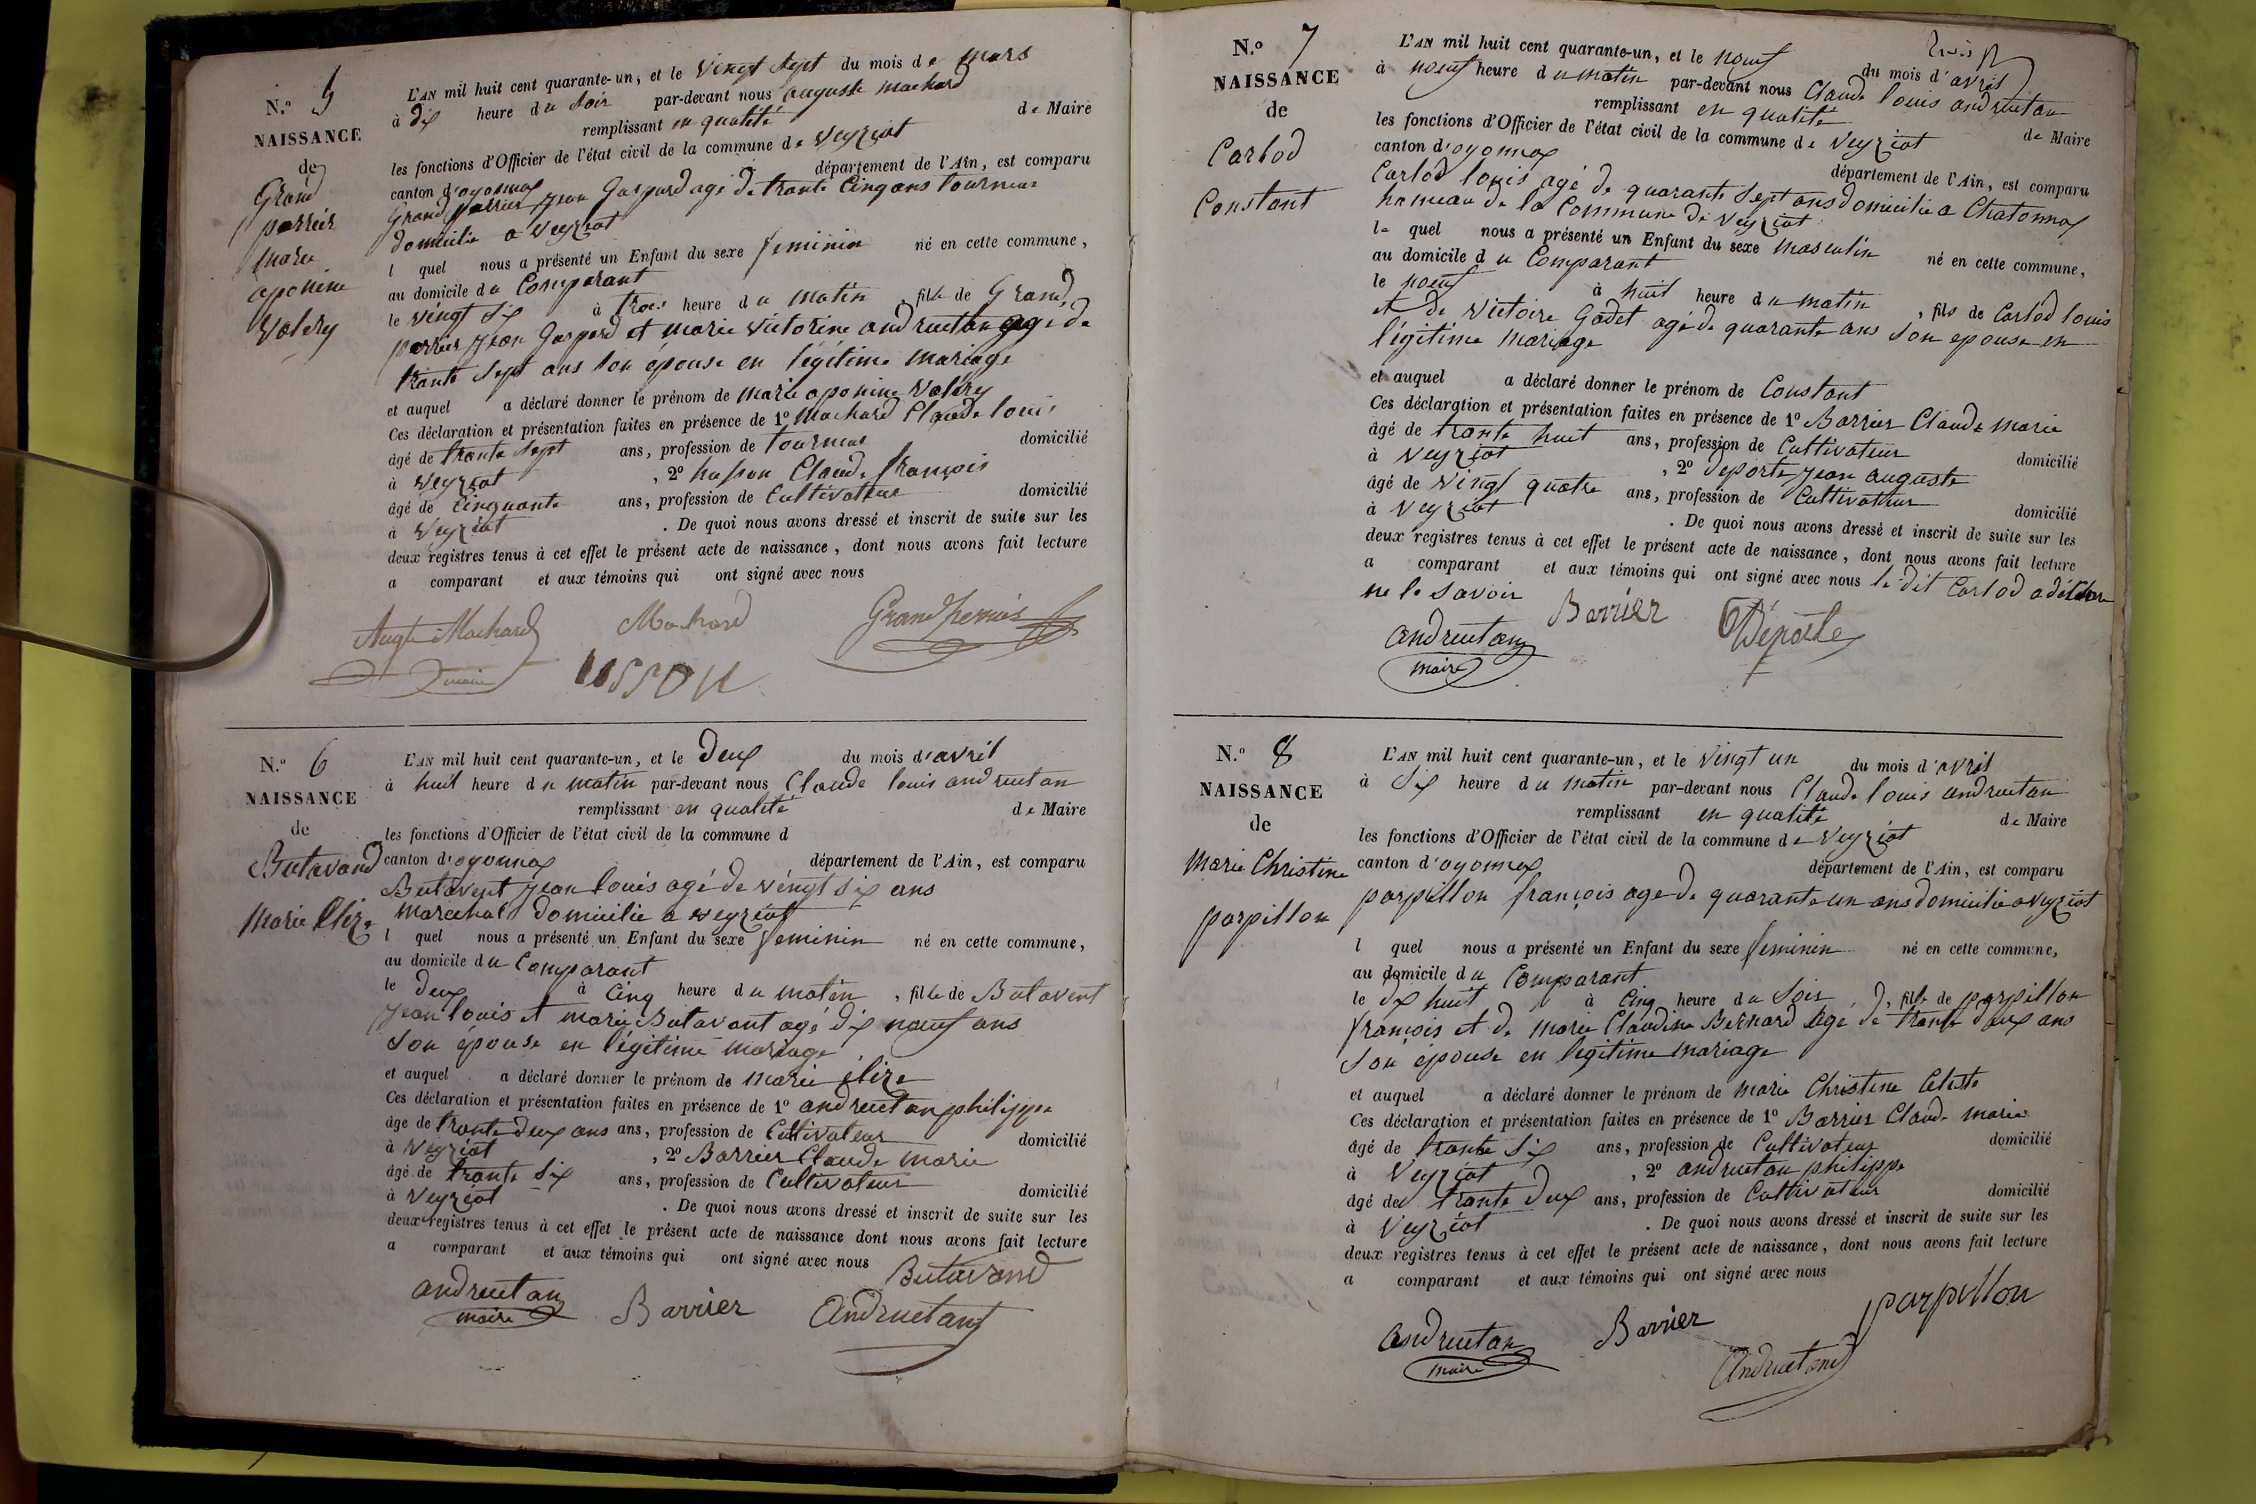 N.º 5
NAISSANCE
de
Grand
perrier
marie
aponine
Valery
L'AN mil huit cent quarante-un, et le vingt sept du mois de mars
à dix heure du soir par-devant nous auguste machard
remplissant en qualité de Maire
les fonctions d'Officier de l'état civil de la commune de veyziat
canton d'oyonnax département de l'Ain, est comparu
Grand perrier jean Gaspard agé de trante Cinq ans tourneur
domicilie a veyziat
l quel nous a présenté un Enfant du sexe feminin né en cette commune,
au domicile du Comparant
le vingt six à trois heure du matin , fille de Grand
perrier jean Gaspard et marie victorine andruetan agé de
trante sept ans son epouse en légitime mariage
et auquel a déclaré donner le prénom de marie aponine Valery
Ces déclaration et présentation faites en présence de 1º Machard Claude louis
âgé de trante sept ans, profession de tourneur domicilié
à veyziat , 2º husson Claude françois
âgé de Cinquante ans, profession de Cultivateur domicilié
à veyziat . De quoi nous avons dressé et inscrit de suite sur les
deux registres tenus à cet effet le présent acte de naissance, dont nous avons fait lecture
a comparant et aux témoins qui ont signé avec nous
Augte Machard Machard Grandperrier
maire usson
N.º 6
NAISSANCE
de
Butavand
Marie Elize
L'AN mil huit cent quarante-un, et le deux du mois d'avril
à huit heure du matin par-devant nous Claude louis andruetan
remplissant en qualité de Maire
les fonctions d'Officier de l'état civil de la commune d
canton d'oyonnax département de l'Ain, est comparu
Butavent jean louis agé de vingt six ans
marechal domicilie a veyziat
l quel nous a présenté un Enfant du sexe feminin né en cette commune,
au domicile du Comparant
le deux à Cinq heure du matin , fille de Butavent
jean louis et marie Butavant agé dix noeuf ans
son épouse en légitime mariage
et auquel a déclaré donner le prénom de marie élize
Ces déclaration et présentation faites en présence de 1º andruetan philippe
âge de trante deux ans ans, profession de Cultivateur domicilié
à veyziat , 2º Barrier Claude marie
âgé de trante six ans, profession de Cultivateur domicilié
à veyziat . De quoi nous avons dressé et inscrit de suite sur les
deux registres tenus à cet effet le présent acte de naissance dont nous avons fait lecture
a comparant et aux témoins qui ont signé avec nous
Butavand
andruetan Barrier Andruetant
maire
trois
N.º 7
NAISSANCE
de
Carlod
Constant
L'AN mil huit cent quarante-un, et le noeuf du mois d'avril
à noeuf heure du matin par-devant nous Claude louis andruetan
remplissant en qualité de Maire
les fonctions d'Officier de l'état civil de la commune de veyziat
canton d'oyonnax département de l'Ain, est comparu
Carlod louis agé de quarante sept ans domicilie a Chatonnax
hameau de la Commune de veyziat
le quel nous a présenté un Enfant du sexe masculin né en cette commune,
au domicile du Comparant
le noeuf à huit heure du matin , fils de Carlod louis
et de victoire Godet agé de quarante ans son epouse en
légitime mariage
et auquel a déclaré donner le prénom de Constant
Ces déclaration et présentation faites en présence de 1º Barrier Claude marie
âgé de trante huit ans, profession de Cultivateur domicilié
à veyziat , 2º deporte jean auguste
âgé de vingt quatre ans, profession de Cultivateur domicilié
à veyziat . De quoi nous avons dressé et inscrit de suite sur les
deux registres tenus à cet effet le présent acte de naissance, dont nous avons fait lecture
a comparant et aux témoins qui ont signé avec nous le dit Carlod a déclaré
ne le savoir
andruetan Barrier Déporte
maire
N.º 8
NAISSANCE
de
Marie Christine
parpillon
L'AN mil huit cent quarante-un, et le vingt un du mois d'avril
à six heure du matin par-devant nous Claude louis andruetan
remplissant en qualité de Maire
les fonctions d'Officier de l'état civil de la commune de veyziat
canton d'oyonnax département de l'Ain, est comparu
parpillon françois age de quarante un ans domicilie a veyziat
l quel nous a présenté un Enfant du sexe feminin né en cette commune,
au domicile du Comparant
le dix huit à Cinq heure du soir , fille de parpillon
françois et de marie Claudine Bernard age de trante deux ans
son épouse en légitime mariage
et auquel a déclaré donner le prénom de marie Christine Celeste
Ces déclaration et présentation faites en présence de 1º Barrier Claude marie
âgé de trante six ans, profession de Cultivateur domicilié
à veyziat , 2º andruetan philippe
âgé de trante deux ans, profession de Cultivateur domicilié
à veyziat . De quoi nous avons dressé et inscrit de suite sur les
deux registres tenus à cet effet le présent acte de naissance, dont nous avons fait lecture
a comparant et aux témoins qui ont signé avec nous
parpillon
andruetan Barrier
maire Andruetand